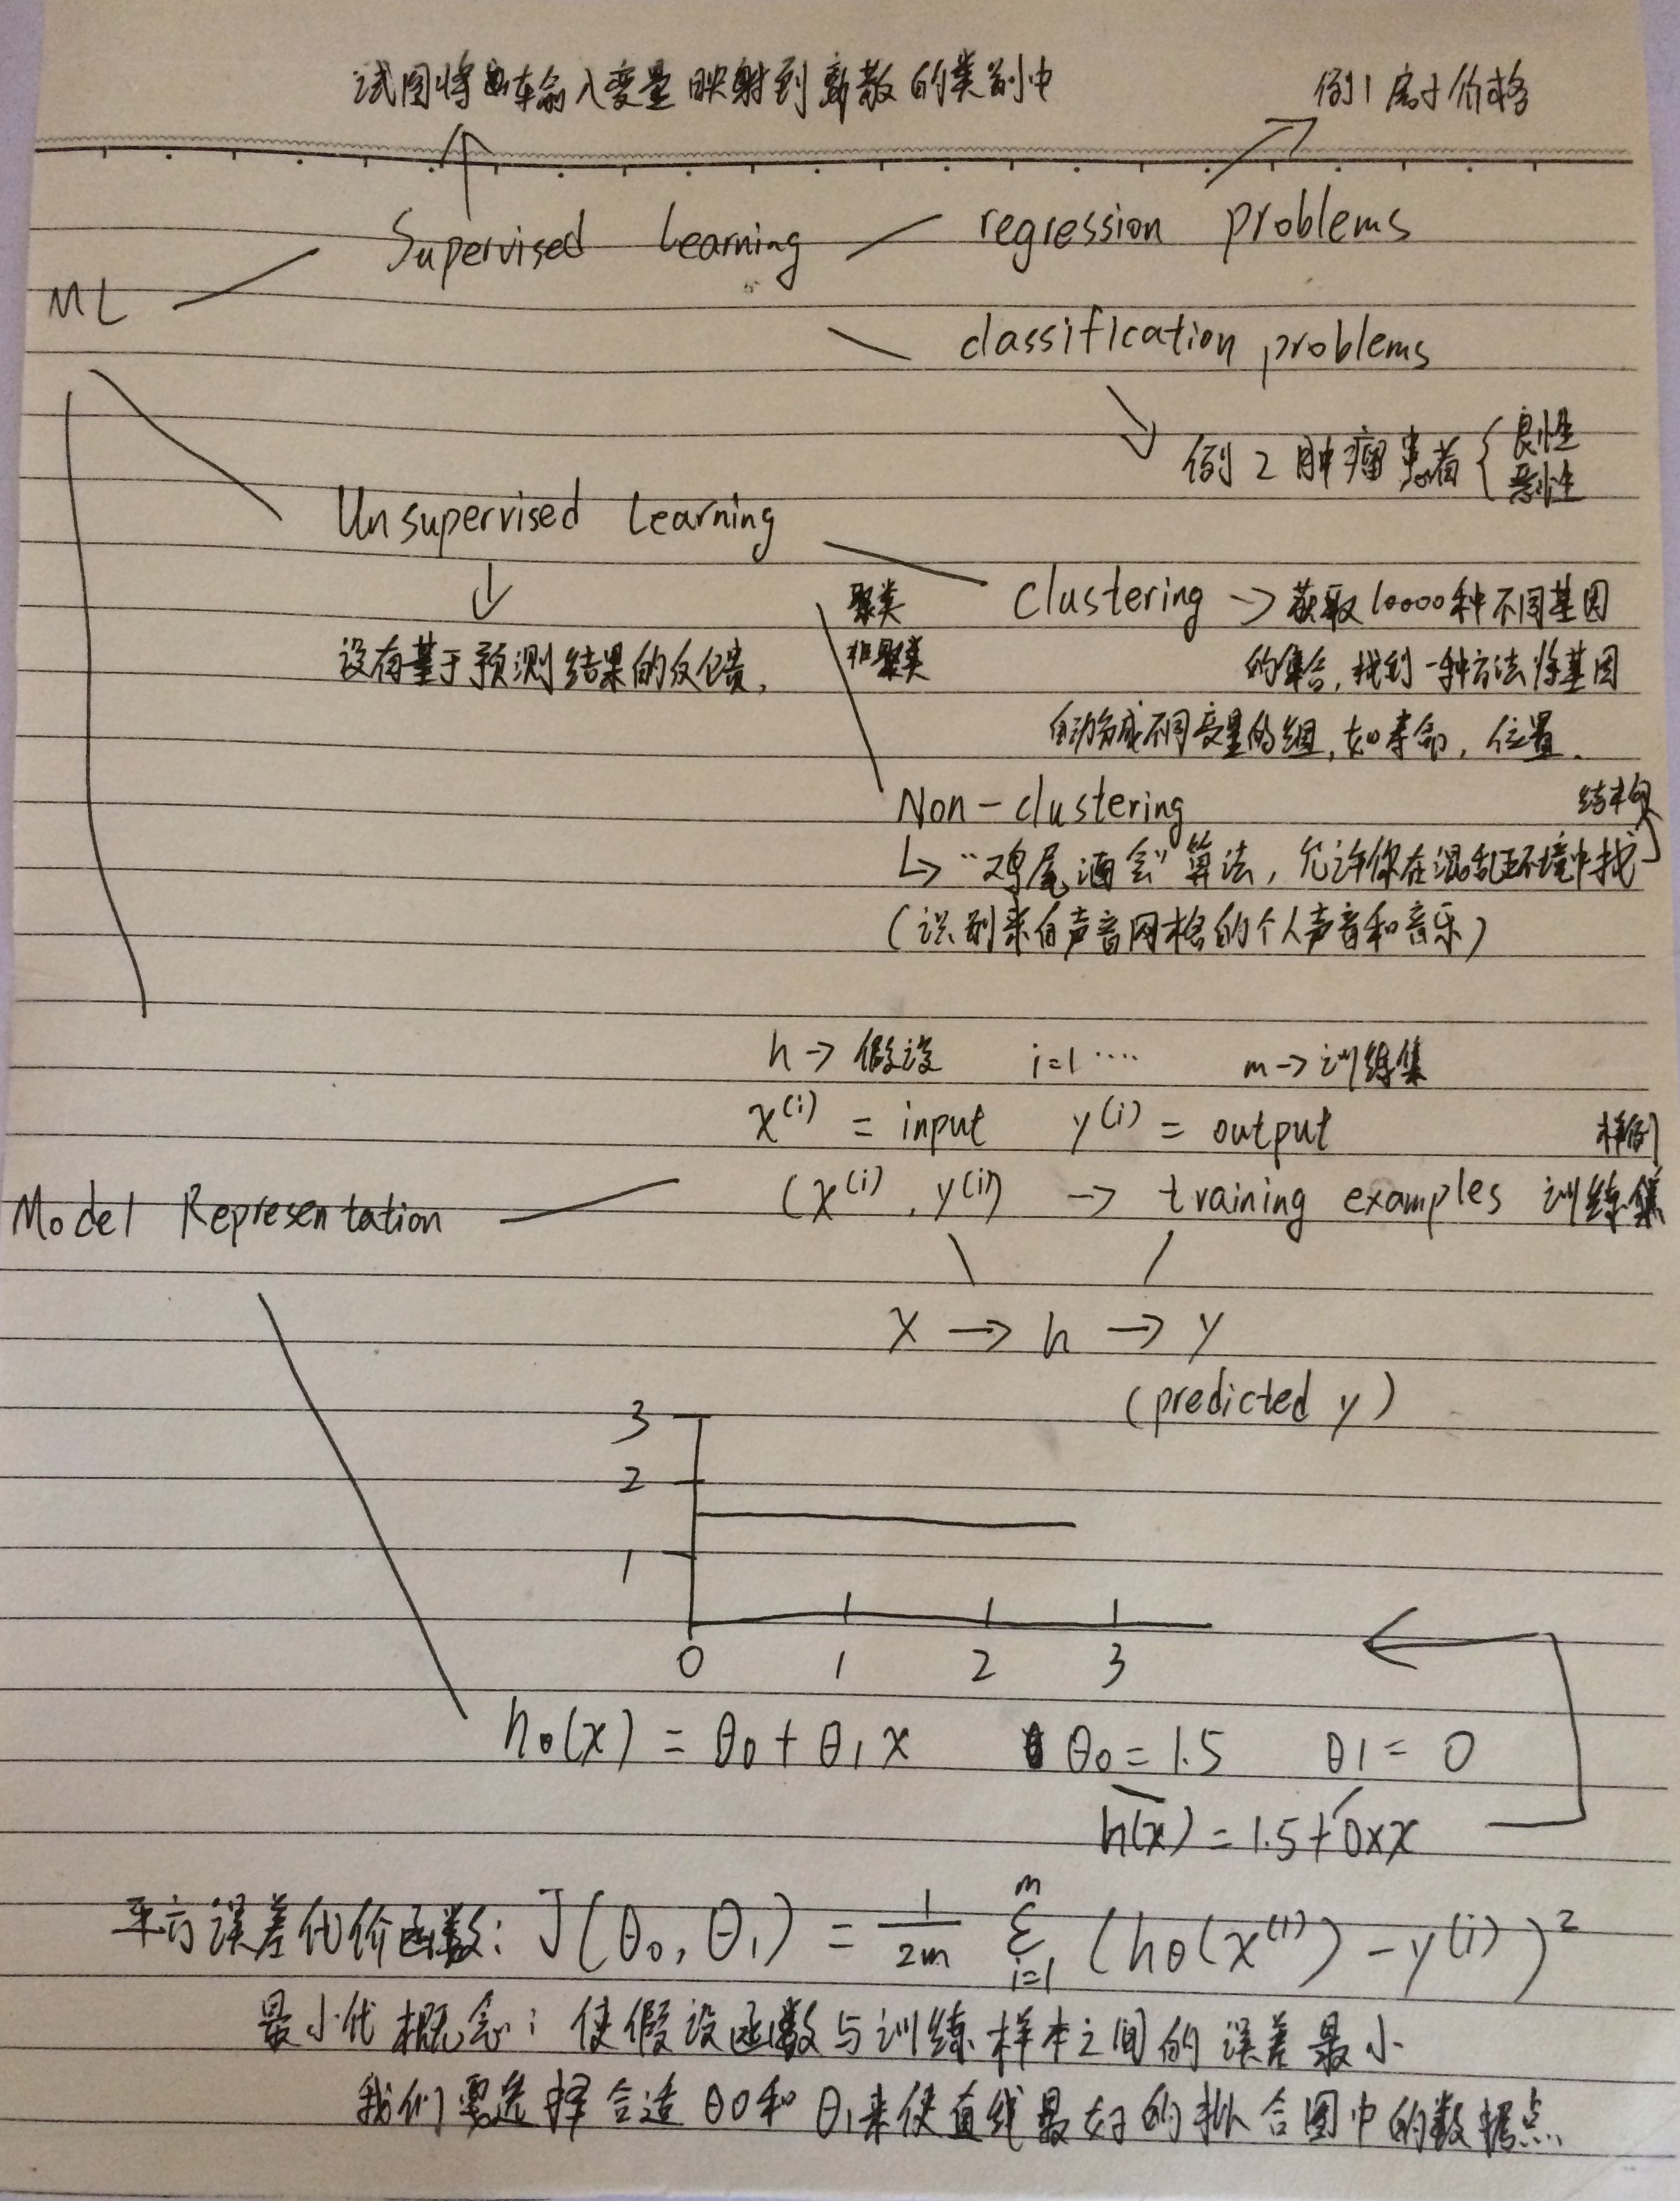 试图将输入变量映射到离散的类别中
例1 房子价格
Supervised Learning
regression problems
ML
classification problems
例2 肿瘤患者 { 良性
恶性
Unsupervised Learning
聚类
非聚类
Clustering → 获取10000种不同基因
没有基于预测结果的反馈,
的集合, 找到一种方法将基因
自动分成不同变量的组, 如寿命, 位置.
Non-clustering
结构
↳ "鸡尾酒会" 算法, 允许你在混乱环境中找
(识别来自声音网格的个人声音和音乐)
h → 假设 i=1 ···· m → 训练集
x^(i) = input y^(i) = output
样例
Model Representation
(x^(i), y^(i)) → training examples 训练集
x → h → y
(predicted y)
3
2
1
0 1 2 3
hθ(x) = θ0 + θ1 x θ0 = 1.5 θ1 = 0
h(x) = 1.5 + 0×x
平方误差代价函数: J(θ0, θ1) = 1/2m Σ_{i=1}^{m} (hθ(x^(i)) - y^(i))^2
最小优概念: 使假设函数与训练样本之间的误差最小
我们要选择合适θ0和θ1来使直线最好的拟合图中的数据点.